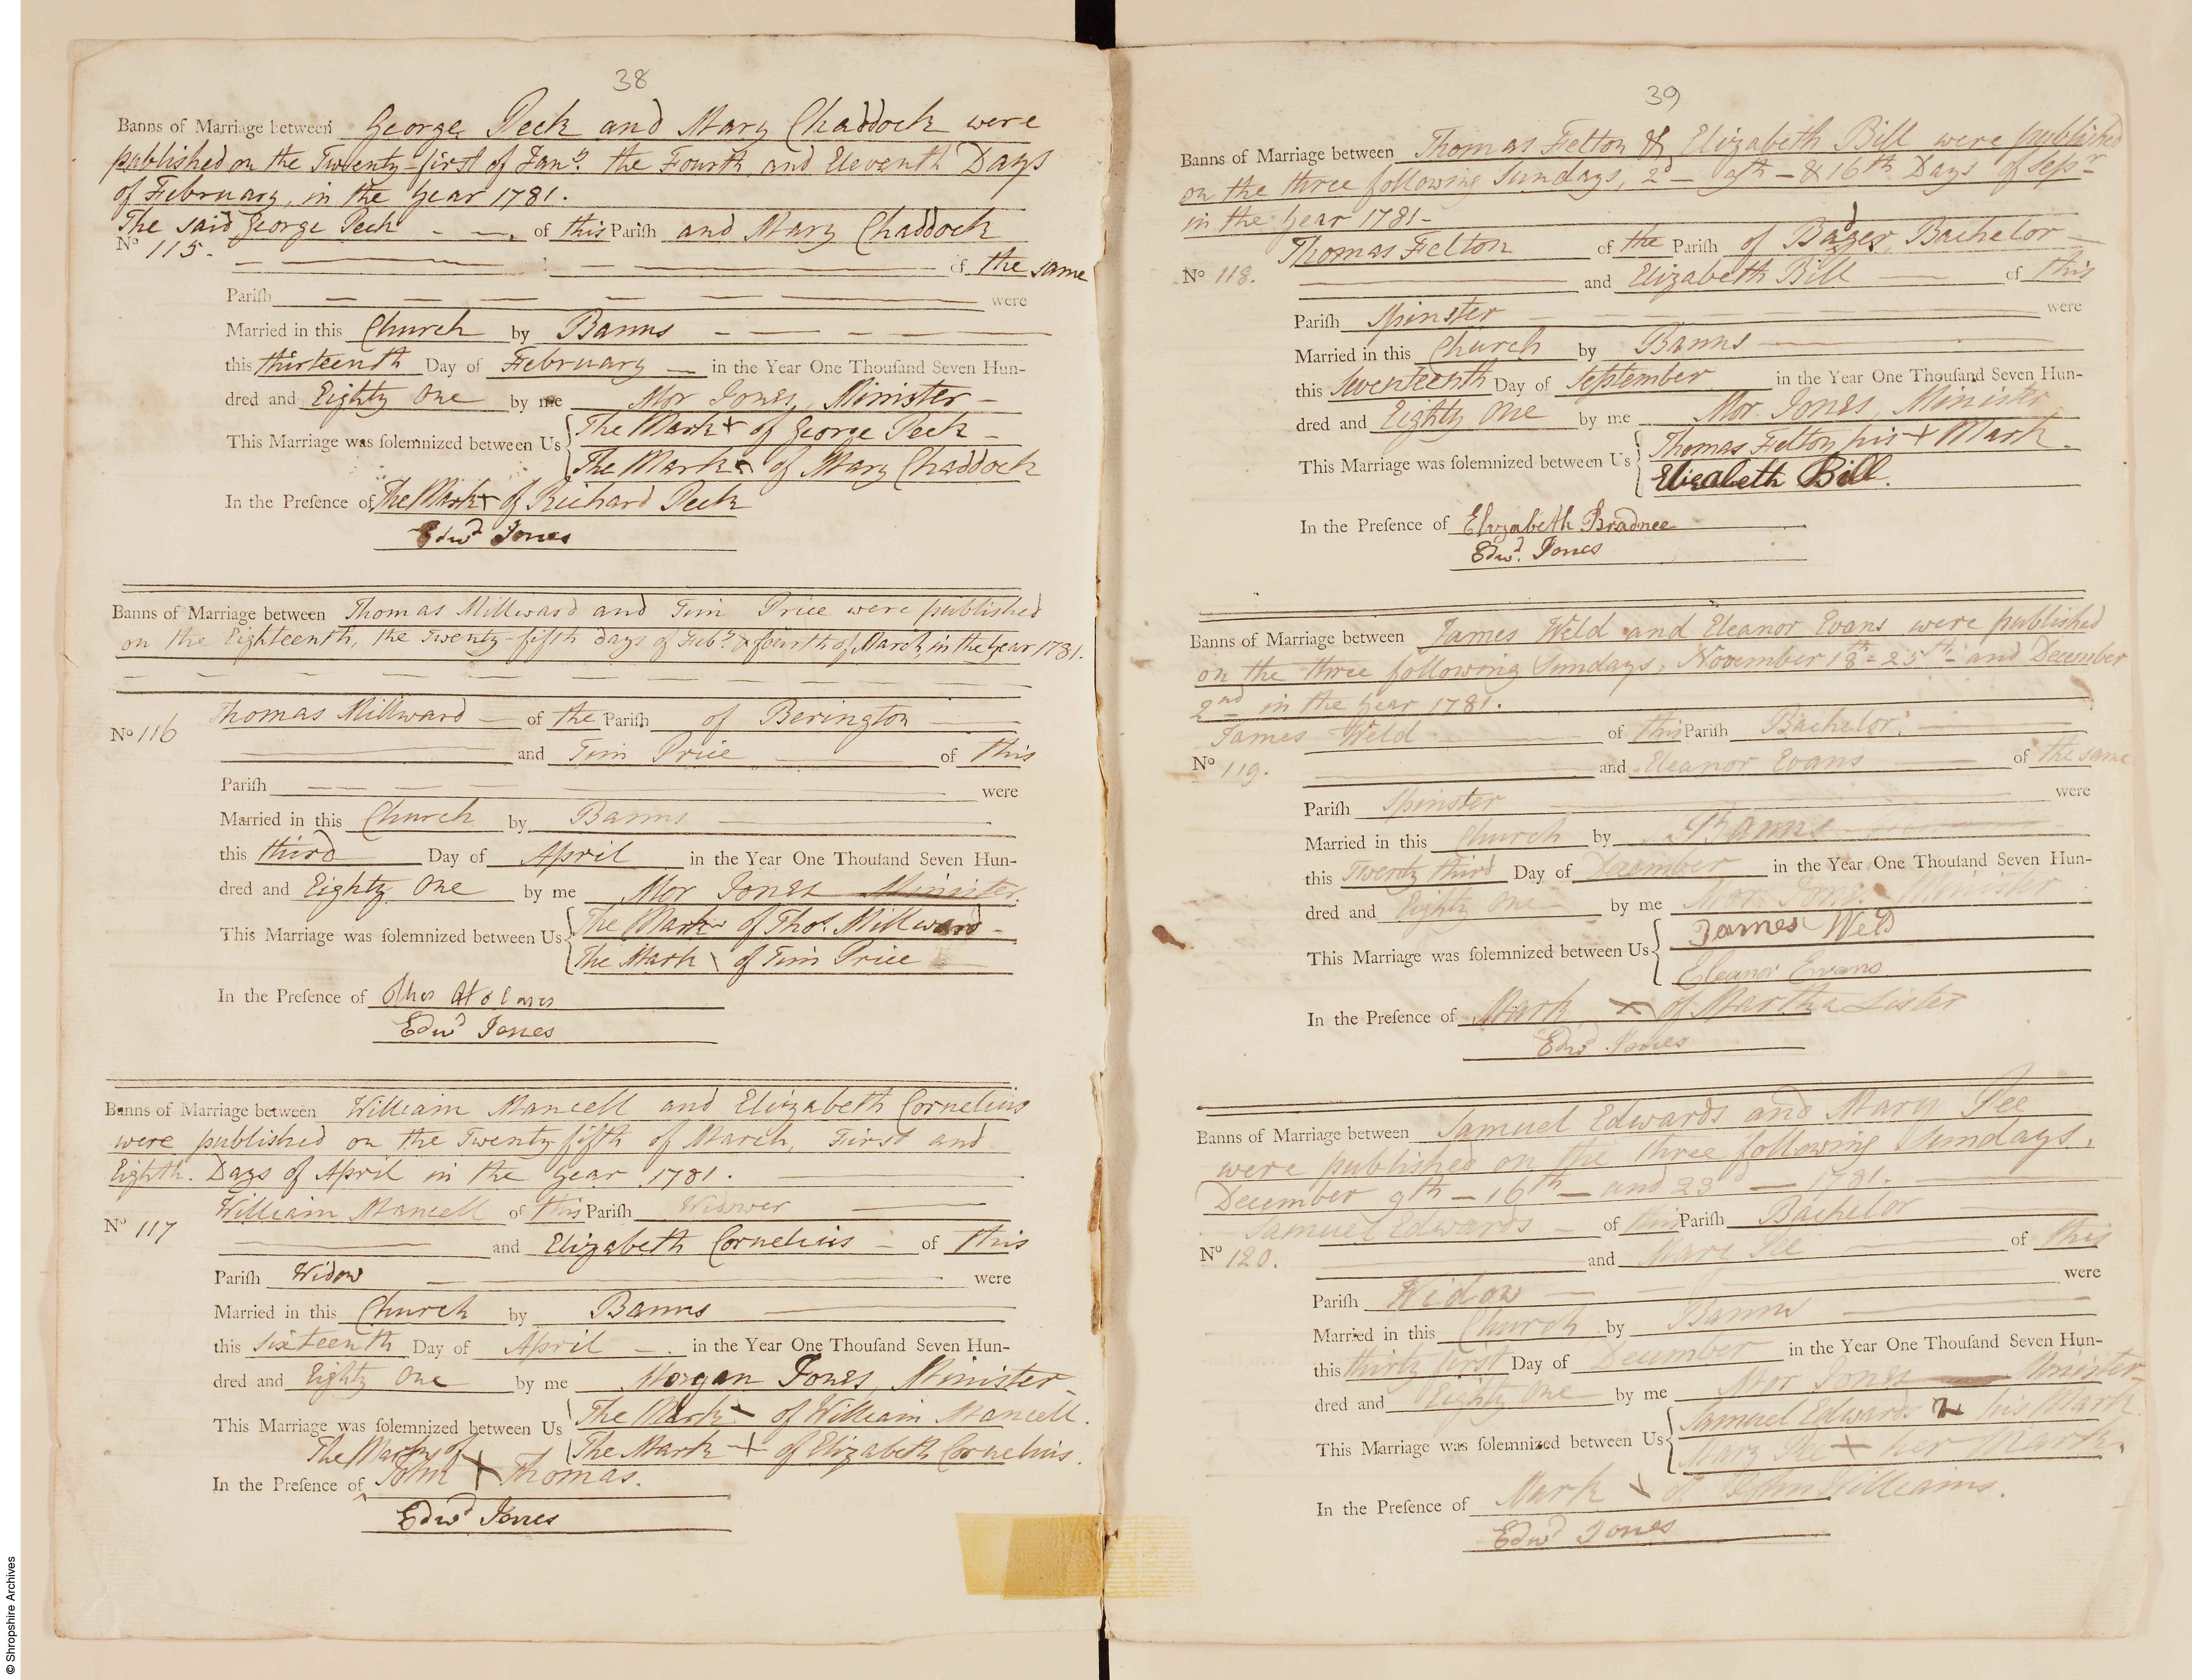 38
Banns of Marriage between George Peck and Mary Chaddock were
published on the Twenty-first of Jany. the Fourth, and Eleventh Days
of February, in the Year 1781.
The said George Peck of this Parish and Mary Chaddock
No 115. of the same
Parish were
Married in this Church by Banns
this thirteenth Day of February in the Year One Thousand Seven Hun-
dred and Eighty One by me Mor Jones, Minister
This Marriage was solemnized between Us The Mark + of George Peck
The Mark of Mary Chaddock
In the Presence of The Mark + of Richard Peck
Edwd Jones
Banns of Marriage between Thomas Millward and Tim Price were published
on the Eighteenth, the Twenty-fifth days of Feby. & fourth of March, in the Year 1781.
Thomas Millward of the Parish of Berington
No 116 and Tim Price of this
Parish were
Married in this Church by Banns
this third Day of April in the Year One Thousand Seven Hun-
dred and Eighty One by me Mor Jones Minister
This Marriage was solemnized between Us The Mark of Thos. Millward
The Mark \ of Tim Price
In the Presence of
Edwd Jones
Banns of Marriage between William Mancell and Elizabeth Cornelius
were published on the Twenty fifth of March, First and
Eighth. Days of April in the Year 1781.
William Mancell of this Parish Widower
No 117 and Elizabeth Cornelius of this
Parish Widow were
Married in this Church by Banns
this sixteenth Day of April in the Year One Thousand Seven Hun-
dred and Eighty One by me Morgan Jones, Minister
This Marriage was solemnized between Us The Mark of William Mancell.
The Mark + of Elizabeth Cornelius.
The Mark of
In the Presence of John + Thomas.
Edwd Jones
39
Banns of Marriage between Thomas Felton & Elizabeth Bill were published
on the three following Sundays, 2d - 9th - & 16th Days of Sepr
in the Year 1781-
Thomas Felton of the Parish of Badger, Bachelor
No 118. and Elizabeth Bill of this
Parish Spinster were
Married in this Church by Banns
this Seventeenth Day of September in the Year One Thousand Seven Hun-
dred and Eighty One by me Mor. Jones, Minister
This Marriage was solemnized between Us Thomas Felton his + Mark.
Elizabeth Bill.
In the Presence of Elizabeth Bradnee
Edwd. Jones
Banns of Marriage between James Weld and Eleanor Evans were published
on the three following Sundays, November 18th - 25th - and December
2nd in the Year 1781.
James Weld of this Parish Bachelor
No 119. and Eleanor Evans of the same
Parish Spinster were
Married in this Church by Banns
this Twenty third Day of December in the Year One Thousand Seven Hun-
dred and Eighty One by me Mor. Jones Minister
This Marriage was solemnized between Us James Weld
Eleanor Evans
In the Presence of Mark × of Martha Lister
Edwd Jones
Banns of Marriage between Samuel Edwards and Mary Pee
were published on the three following Sundays,
December 9th - 16th - and 23d - 1781.
Samuel Edwards of this Parish Bachelor
No 120. and Mary Pee of this
Parish Widow were
Married in this Church by Banns
this thirty first Day of December in the Year One Thousand Seven Hun-
dred and Eighty One by me Mor Jones Minister
This Marriage was solemnized between Us Samuel Edwards his Mark
Mary Pee + her Mark.
In the Presence of Mark of John Williams.
Edwd Jones
© Shropshire Archives